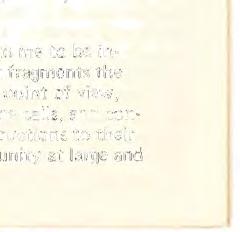 to me to be in-
fragments the
point of view,
calls, and con-
to their
unity at large and